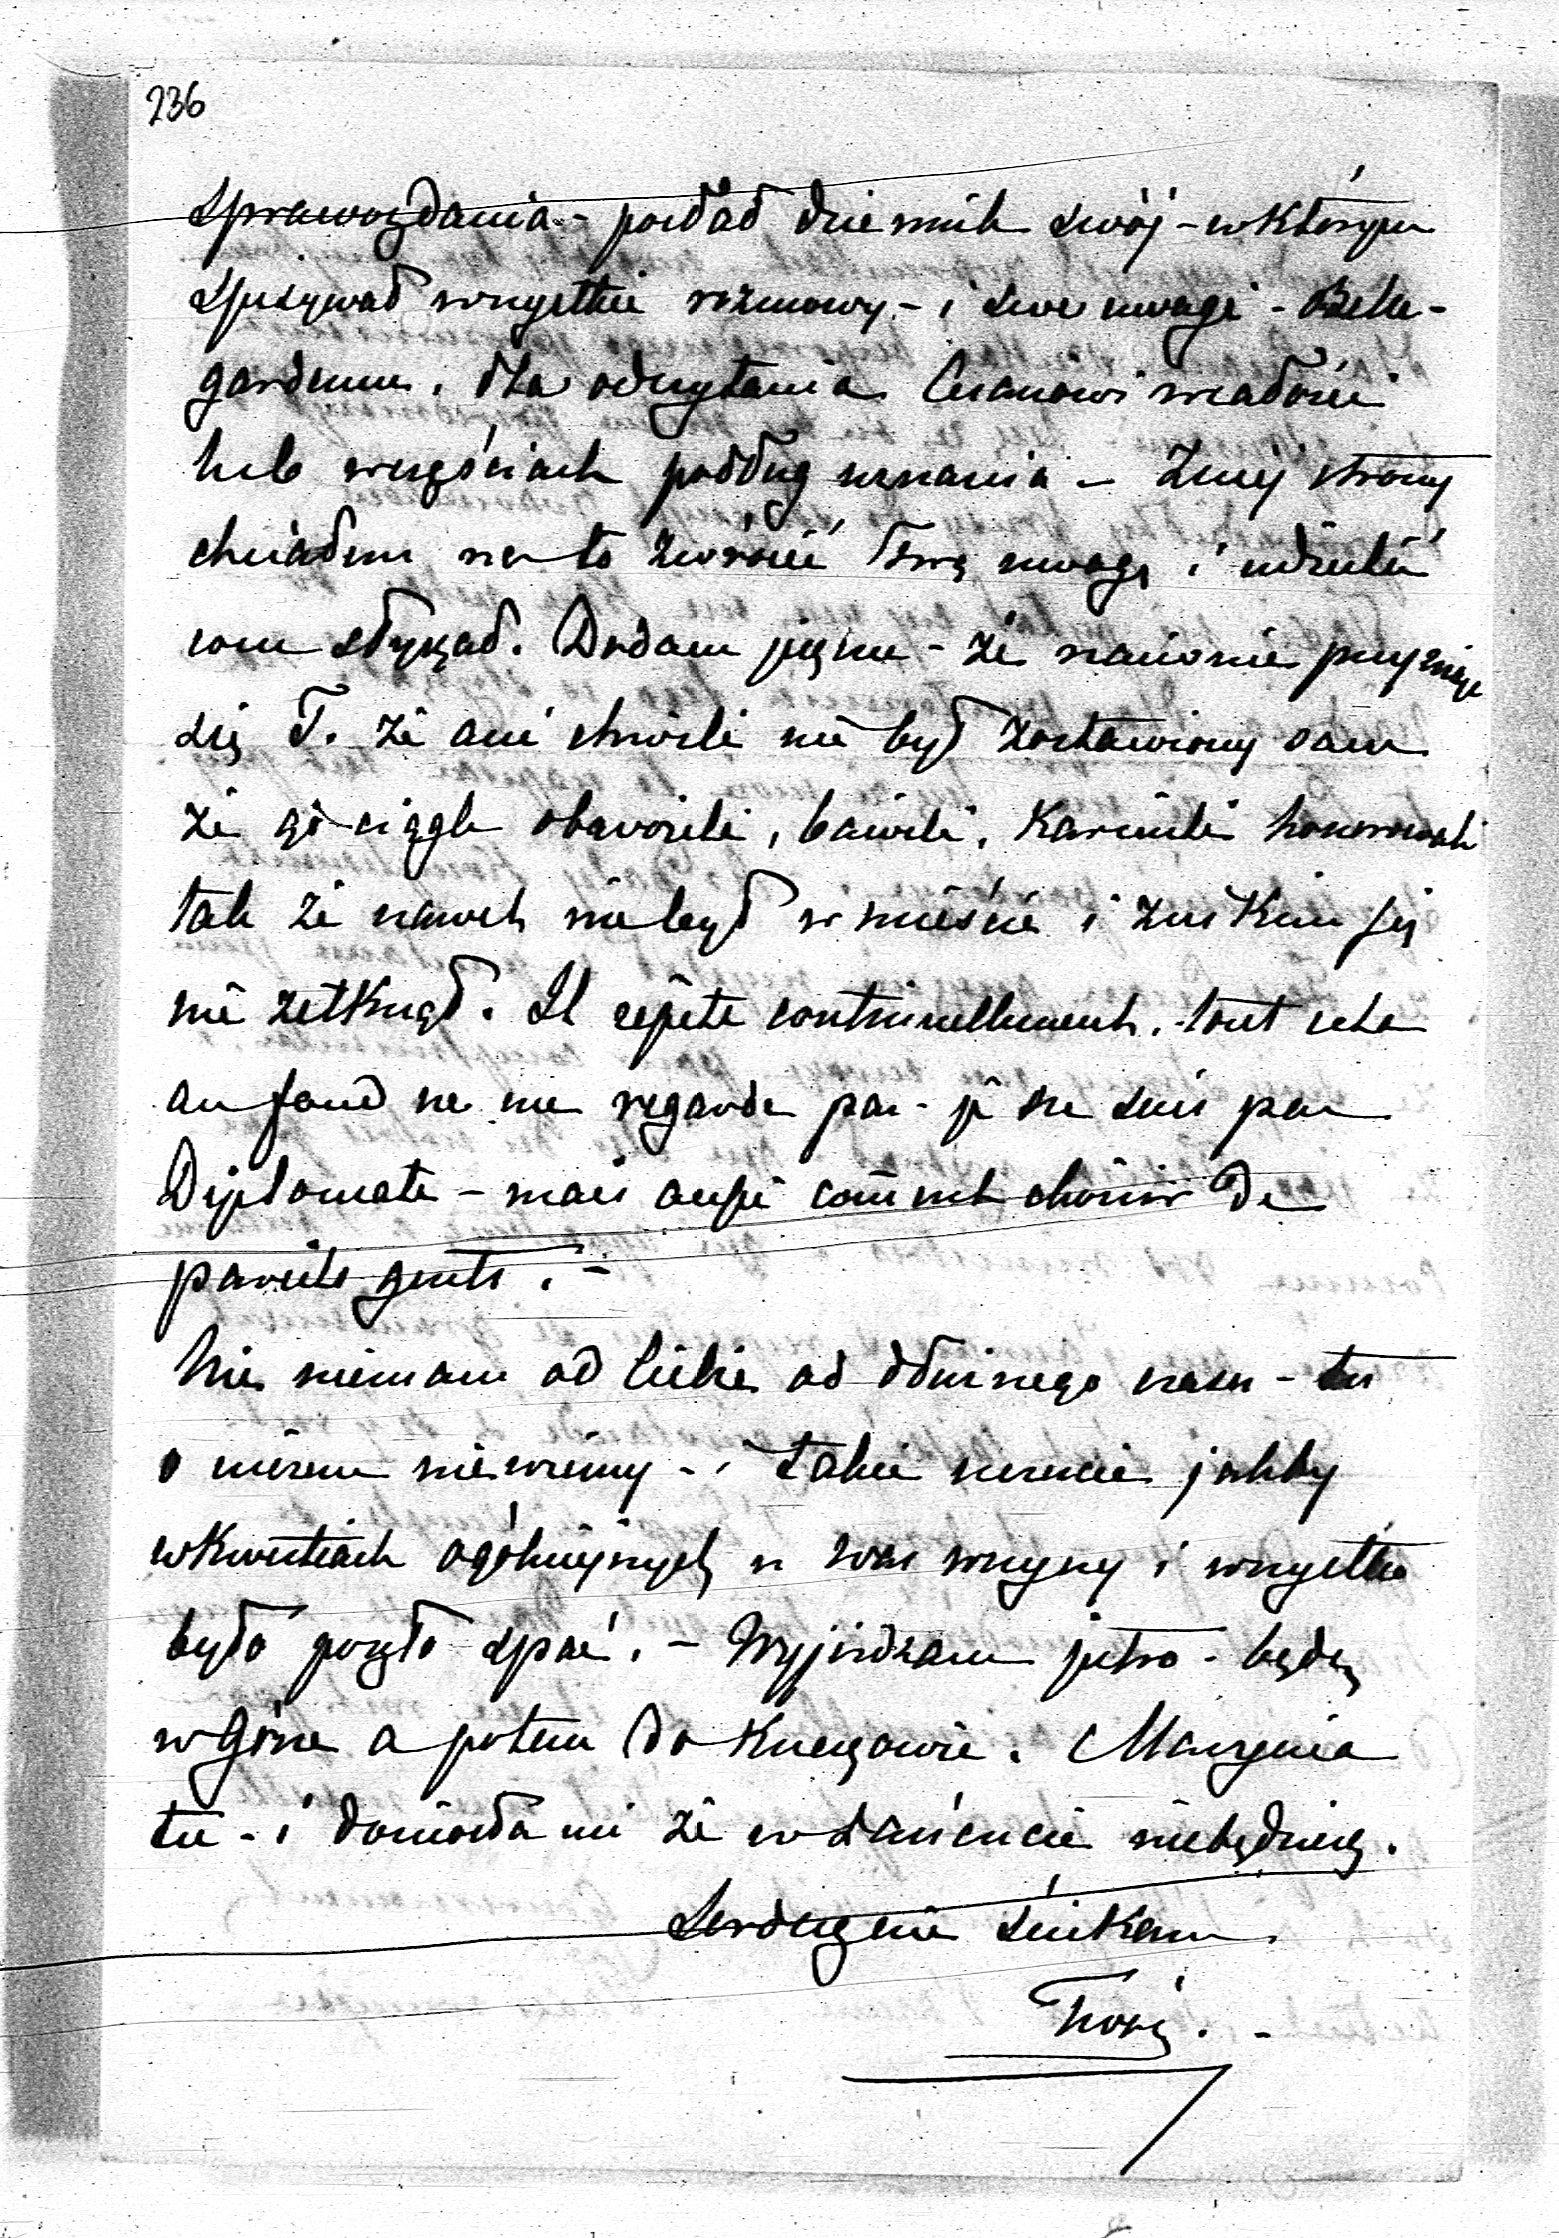 236
Sprawozdania - posłał dziennik swój - w którym
spisywał wszystkie rozmowy - i swe uwagi - Belle-
gardemu, dla odczytania Cesarowi w całości
lub w częściach podług uznania - Z mej strony
chciałem na to zwrócić Twą uwagę i udzielić
com słyszał. Dodam jeszcze - że naiwnie przyznaje
się T. że ani chwili nie był zostawiony sam
że go ciągle obwozili, bawili, karmili honorowali
tak że nawet nie był w mieście i z nikim się
nie zetknął. Il repète continuellement, tout cela
au fond ne me regarde pas - je ne suis pas
Diplomate - mais aussi comment choisir de
pareils gents. -
Nic niemam od Ciebie od dłuższego czasu - tu
o niczem nie wiemy - i takie uczucie jakby
w kwestiach ogólniejszych u was wszyscy i wszystko
było poszło spać. - Wyjeżdżam jutro - będę
w Górze a potem do Krzeszowic. Marynia
tu - i doniosła mi że w Łańcucie nie będziesz.
Serdecznie ściskam
Twój. -